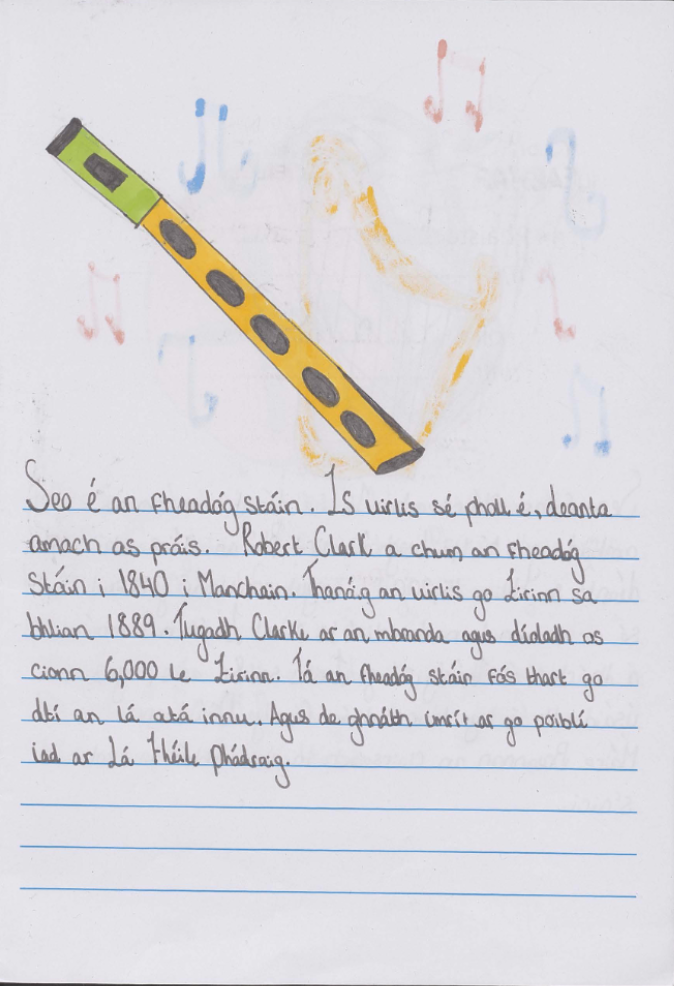 Seo é an fheadóg stáin. Is uirlis sé pholl é, deanta
amach as práis. Robert Clark a chum an fheadóg
Stáin i 1840 i Manchain. Thanáig an uirlis go Eirinn sa
bhlian 1889. Tugadh Clarke ar an mbranda agus díoladh os
cionn 6,000 le Eirinn. Tá an fheadóg stáin fós thart go
dtí an lá atá innu. Agus de ghnáth imrít ar go poiblí
iad ar Lá Fhéile Phádraig.